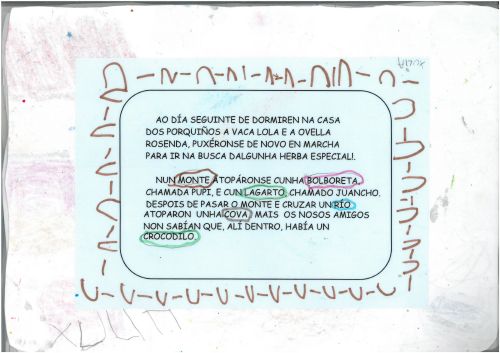 AO DÍA SEGUINTE DE DORMIREN NA CASA
DOS PORQUIÑOS A VACA LOLA E A OVELLA
ROSENDA, PUXÉRONSE DE NOVO EN MARCHA
PARA IR NA BUSCA DALGUNHA HERBA ESPECIAL!.
NUN MONTE ATOPÁRONSE CUNHA BOLBORETA
CHAMADA PUPI, E CUN LAGARTO CHAMADO JUANCHO.
DESPOIS DE PASAR O MONTE E CRUZAR UN RÍO
ATOPARON UNHA COVA, MAIS OS NOSOS AMIGOS
NON SABÍAN QUE, ALÍ DENTRO, HABÍA UN
CROCODILO.